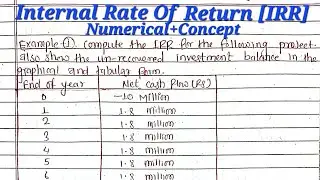 Internal Rate Of Return [IRR]
Numerical+Concept
Example ① Compute the IRR for the following project.
also show the un-recovered investment balance in the
graphical and tabular form.
End of year Net cash flow (Rs)
0 -10 million
1 1.8 million
2 1.8 million
3 1.8 million
4 1.8 million
5 1.8 million
6 1.8 million